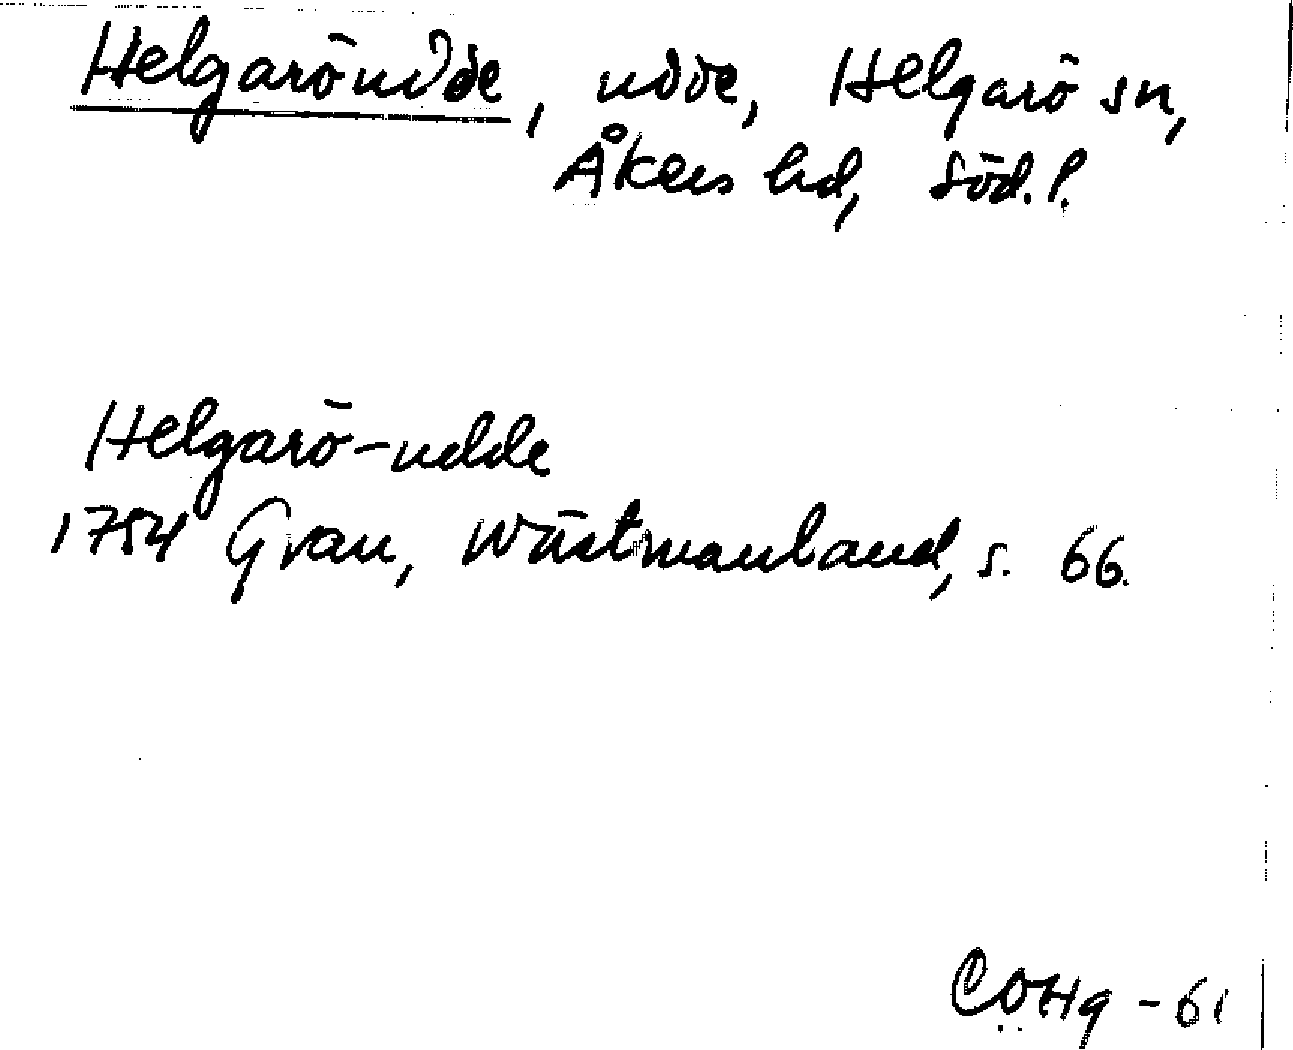 Helgaröudde, udde, Helgarö sn,
Åkers hd, Söd. l.
Helgarö-udde
1754 Grau, Wästmanland, s. 66.
COHg -61